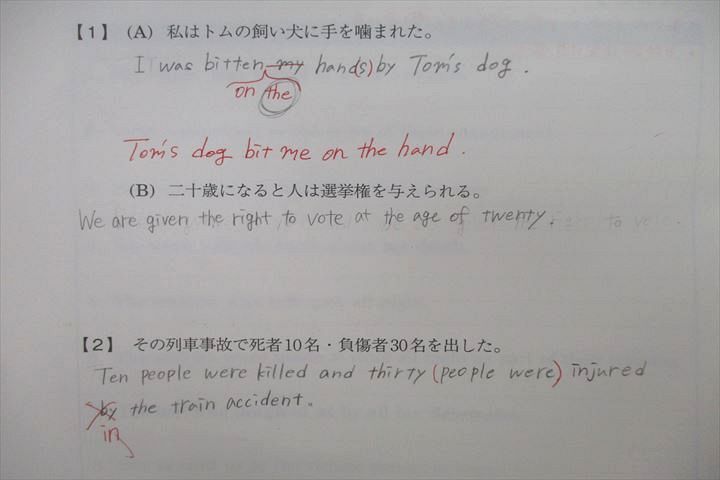 【1】 (A) 私はトムの飼い犬に手を噛まれた。
I was bitten my hand(s) by Tom's dog.
on the
Tom's dog bit me on the hand.
(B) 二十歳になると人は選挙権を与えられる。
We are given the right to vote at the age of twenty.
【2】 その列車事故で死者10名・負傷者30名を出した。
Ten people were killed and thirty (people were) injured
by the train accident.
in